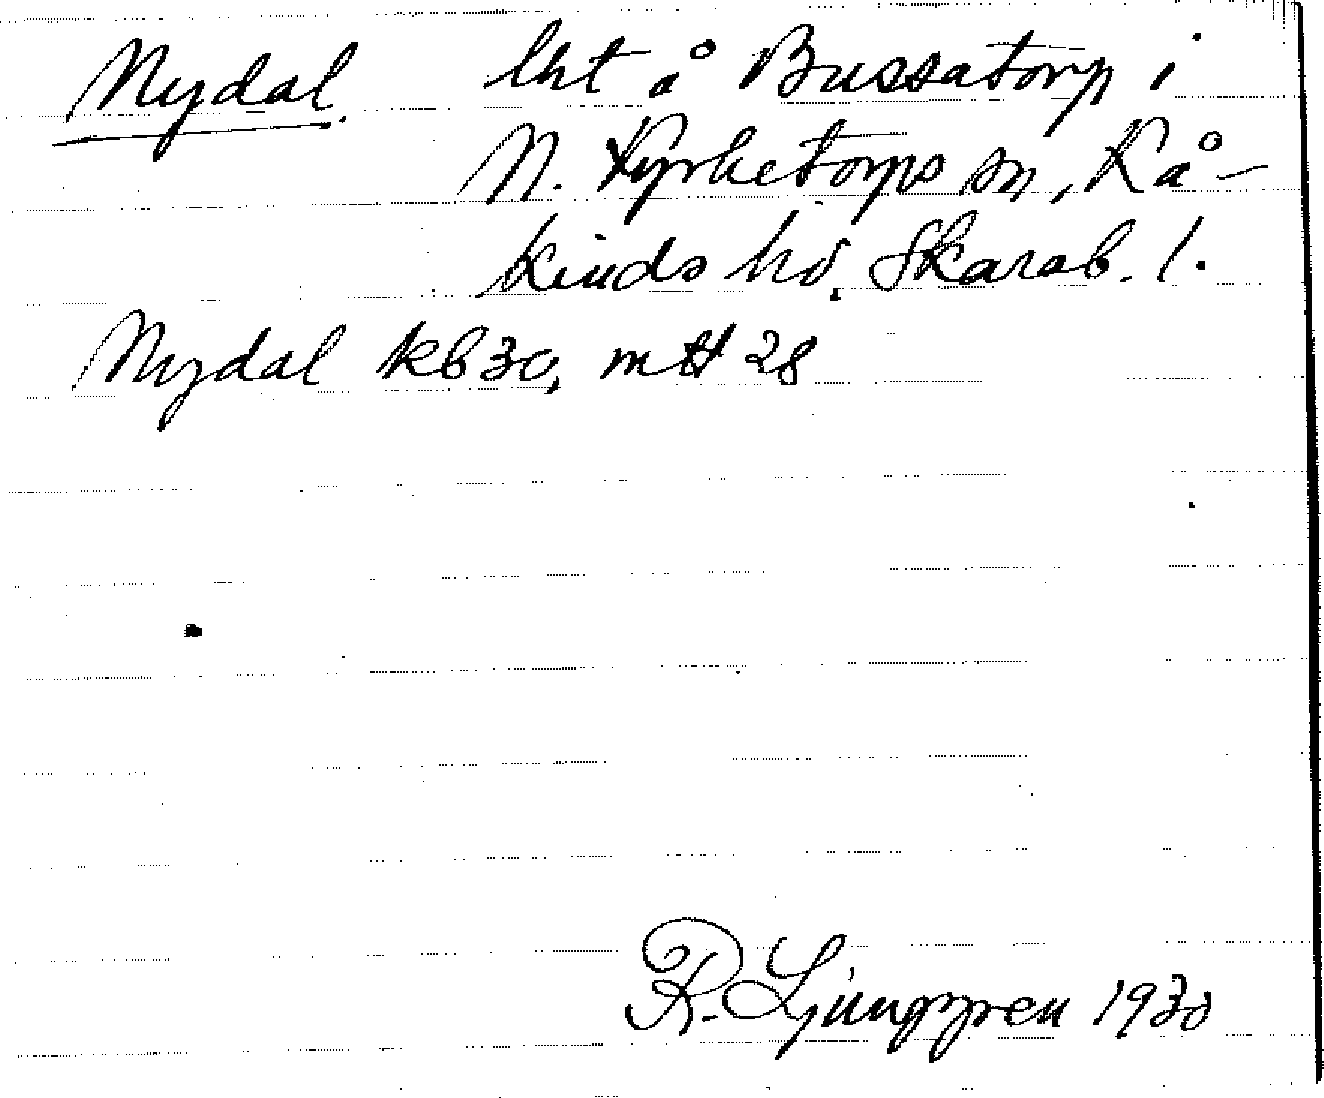 Nydal. lht å Bussatorp i
N. Kyrketorps sn, Kå-
kinds hd. Skarab. l.
Nydal kb 30, mtl 28
R. Ljunggren 1930